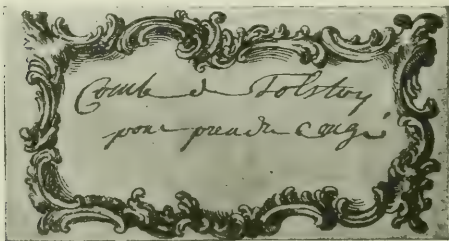 Comte de Tolstoy
pour prendre congé